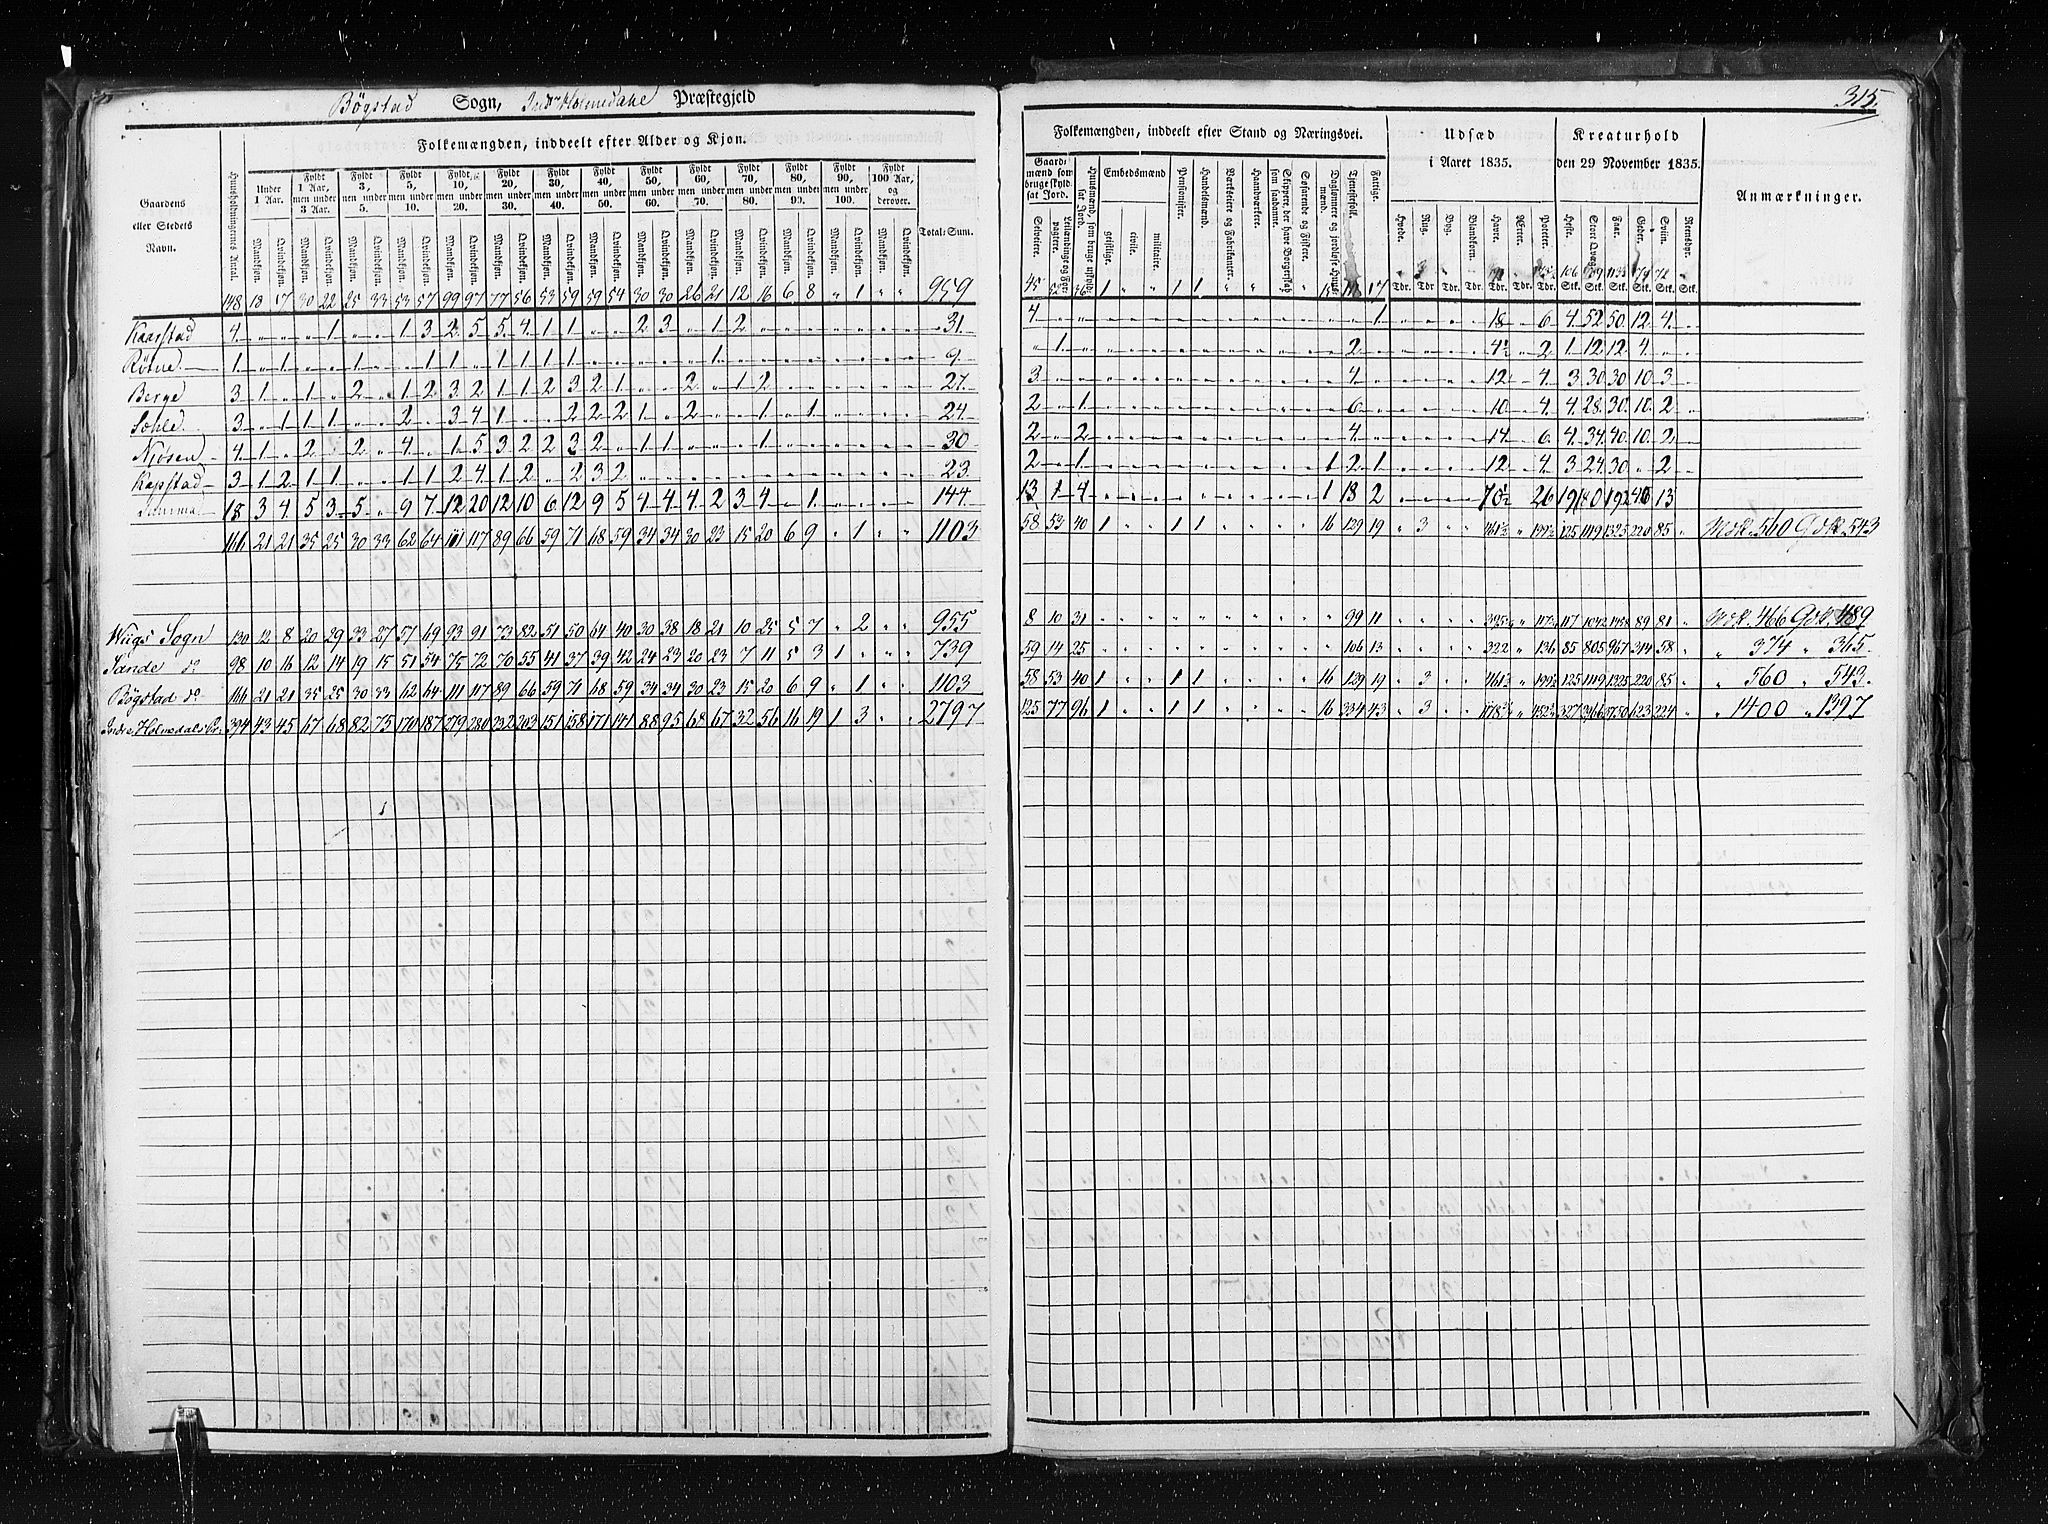 Bögstad Sogn, Indre Holmedahls Præstegjeld
315.
Gaardens eller Stedets Navn.
Huusholdningernes Antal.
Folkemængden, inddeelt efter Alder og Kjøn.
Under 1 Aar. Fyldt 1 Aar, men under 3 Aar. Fyldt 3, men under 5. Fyldt 5, men under 10. Fyldt 10, men under 20. Fyldt 20, men under 30. Fyldt 30, men under 40. Fyldt 40, men under 50. Fyldt 50, men under 60. Fyldt 60, men under 70. Fyldt 70, men under 80. Fyldt 80, men under 90. Fyldt 90, men under 100. Fyldt 100 Aar, og derover.
Mandkjøn. Qvindekjøn. Total-Sum.
Folkemængden, inddeelt efter Stand og Næringsvei.
Gaardmænd som bruge skyldsat Jord. Selveiere. Leilændinge og Forpagtere. Huusmænd, som bruge uskyldsat Jord. Embedsmænd geistlige. civile. militaire. Pensionister. Handelsmænd. Værkseiere og Fabrikanter. Haandværkere. Skippere, der have Borgerskab som saadanne. Søfarende og Fiskere. Daglønnere og jordløse Huusmænd. Tjenestefolk. Fattige.
Udsæd i Aaret 1835.
Hvede. Rug. Byg. Blandkorn. Havre. Ærter. Poteter.
Kreaturhold den 29 November 1835.
Heste. Stort Qvæg. Faar. Geder. Sviin. Reensdyr.
Tdr. Tdr. Tdr. Tdr. Tdr. Tdr. Tdr. Stk. Stk. Stk. Stk. Stk. Stk.
Anmærkninger.
148 18 17 30 22 25 33 53 57 99 97 77 56 53 59 59 54 30 30 26 21 12 16 6 8 " 1 " " 959
Kaarstad 4 " " " 1 " " 1 3 2 5 5 4 1 1 " " 2 3 " 1 2 " " " " " " " 31. 4 1 18 6 4 52 50 12 4
1 " 1 " " 1 " " 1 1 " 1 1 1 1 " " " " " 1 " " " " " " " " 9. " 1 2 4½ 2 1 12 12 4
Berge 3 1 " 1 " 2 " 1 2 3 2 1 1 2 3 2 1 " " 2 " 1 2 " " " " " " 27. 3 4 12 4 3 30 30 10 3
3 " 1 1 1 " " 2 " 3 4 1 " " 2 2 2 1 " 2 " " 1 " 1 " " " " 24. 2 " 1 6 10 4 4 28 30 10 2
Njøsen 4 1 " 2 " 2 " 4 " 1 5 3 2 2 3 2 " 1 1 " " " 1 " " " " " " 30 2 " 2 4 14 6 4 34 40 10 2
Kapstad 3 1 2 1 1 " " 1 1 2 4 1 2 " 2 3 2 " " " " " " " " " " " " 23. 2 " 1 1 2 1 12 4 3 24 30 " 2
18 3 4 5 3 5 " 9 7 12 20 12 10 6 12 9 5 4 4 4 2 3 4 " 1 144 13 1 4 1 18 2 70½ 26 19 180 192 46 13
166 21 21 35 25 30 33 62 64 111 117 89 66 59 71 68 59 34 34 30 23 15 20 6 9 " 1 " " 1103 58 53 40 1 " " 1 1 16 129 19 " 3 461½ " 199½ 125 1119 1325 220 85 " Mdk. 560 Qdk. 543
Wiigs Sogn 130 12 8 20 29 33 27 57 69 93 91 73 82 51 50 64 40 30 38 18 21 10 25 5 7 " 2 " " 955 8 10 31 99 11 117 1042 1458 89 81 " Mdk. 466 Qdk. 489
Sande do 98 10 16 12 14 19 15 51 54 75 72 70 55 41 37 39 42 24 23 20 23 7 11 5 3 1 " " " 739 59 14 25 106 13 322 " 136 85 805 967 314 58 " " 374 " 365.
Bögstad do 166 21 21 35 25 30 33 62 64 111 117 89 66 59 71 68 59 34 34 30 23 15 20 6 9 " 1 " " 1103 58 53 40 1 " " 1 1 16 129 19 " 3 461½ " 199½ 125 1119 1325 220 85 " " 560 " 543.
Indre Holmedals Pr: 394 43 45 67 68 82 75 170 187 279 280 232 203 151 158 171 141 88 95 68 67 32 56 16 19 1 3 " " 2797 125 77 96 1 " " 1 1 16 334 43 " 3 327 2966 3750 623 224 " " 1400 " 1397